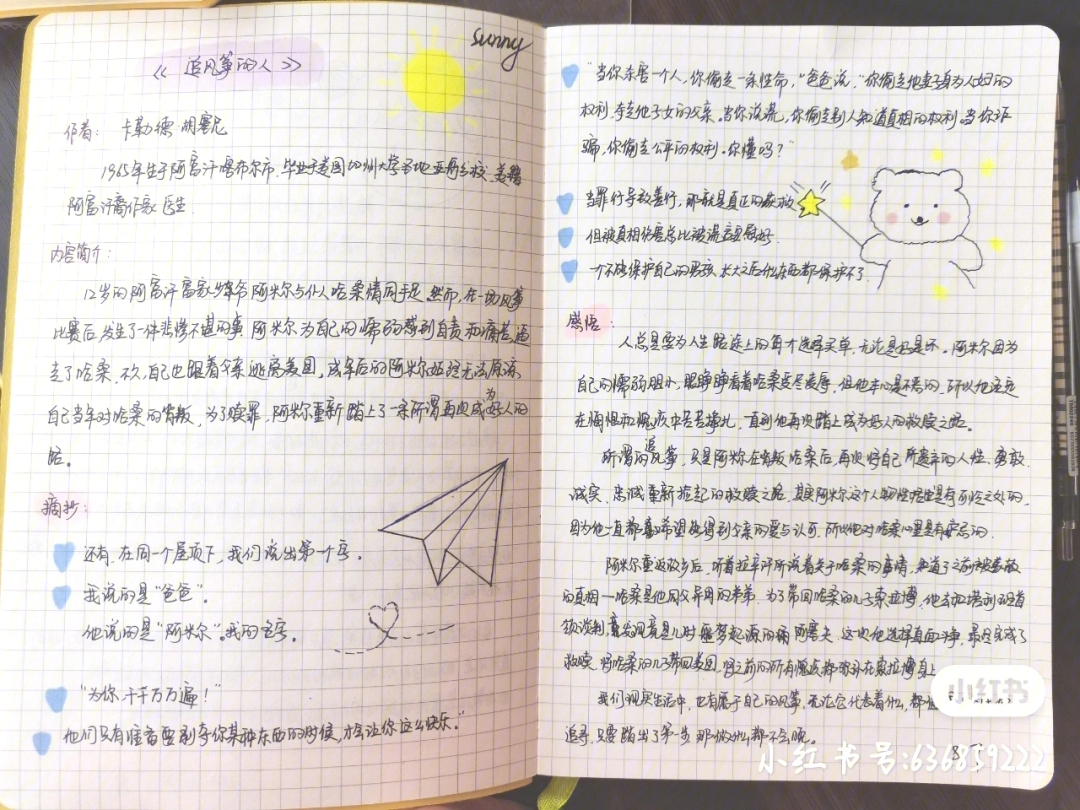 sunny
《 追风筝的人 》
作者： 卡勒德·胡赛尼
1965年生于阿富汗喀布尔市，毕业于美国加州大学圣地亚哥分校，美籍
阿富汗裔作家 医生
内容简介：
12岁的阿富汗富家少爷 阿米尔与仆人哈桑情同手足 然而，在一场风筝
比赛后，发生了一件悲惨不堪的事，阿米尔为自己的懦弱感到自责和痛苦，逼
走了哈桑，不久，自己也跟着父亲逃离美国，成年后的阿米尔始终无法原谅
自己当年对哈桑的背叛，为了赎罪，阿米尔重新踏上了一条所谓再次成为好人的
路。
摘抄：
还有，在同一个屋顶下，我们说出第一个字。
我说的是“爸爸”。
他说的是“阿米尔”。我的名字。
“为你，千千万万遍！”
他们只有准备要剥夺你某种东西的时候，才会让你这么快乐。”
“当你杀害一个人，你偷走一条性命，”爸爸说，“你偷走他妻子身为人妇的
权利，夺走他子女的父亲。当你说谎，你偷走别人知道真相的权利。当你诈
骗，你偷走公平的权利。你懂吗？”
当罪行导致善行，那就是真正的获救
但被真相伤害总比被谎言慰好
一个不能保护自己的男孩，长大之后什么东西都保护不了
感悟：
人总是要为人生路途上的每个选择买单，无论是好是坏。阿米尔因为
自己的懦弱胆小，眼睁睁看着哈桑受尽凌辱，但他本心是不坏的，所以他还是
在悔恨和愧疚中苦苦挣扎，直到他再次踏上成为好人的救赎之路。
所谓的追风筝，只是阿米尔在背叛哈桑后，再次将自己所遗弃的人性、勇敢、
诚实、忠诚重新拾起的救赎之路，其实阿米尔这个人物性格也是有可怜之处的，
因为他一直都希望能得到父亲的爱与认可，所以他对哈桑心里是有妒忌的。
阿米尔重返故乡后，听着拉辛汗所说着关于哈桑的事情，知道了之前被
的真相—哈桑是他同父异母的弟弟，为了带回哈桑的儿子索拉博，他去和塔利班首
领谈判，竟发现竟是儿时噩梦起源的阿塞夫，这次他选择直面斗争，最终完成了
救赎，将哈桑的儿子带回美国，将之前的所有愧疚都弥补在索拉博身上
我们现实生活中，也有属于自己的风筝，无论它代表着什么，都
追寻，只要踏出了第一步，那做什么都不会晚。
小红书
小红书号:636859222